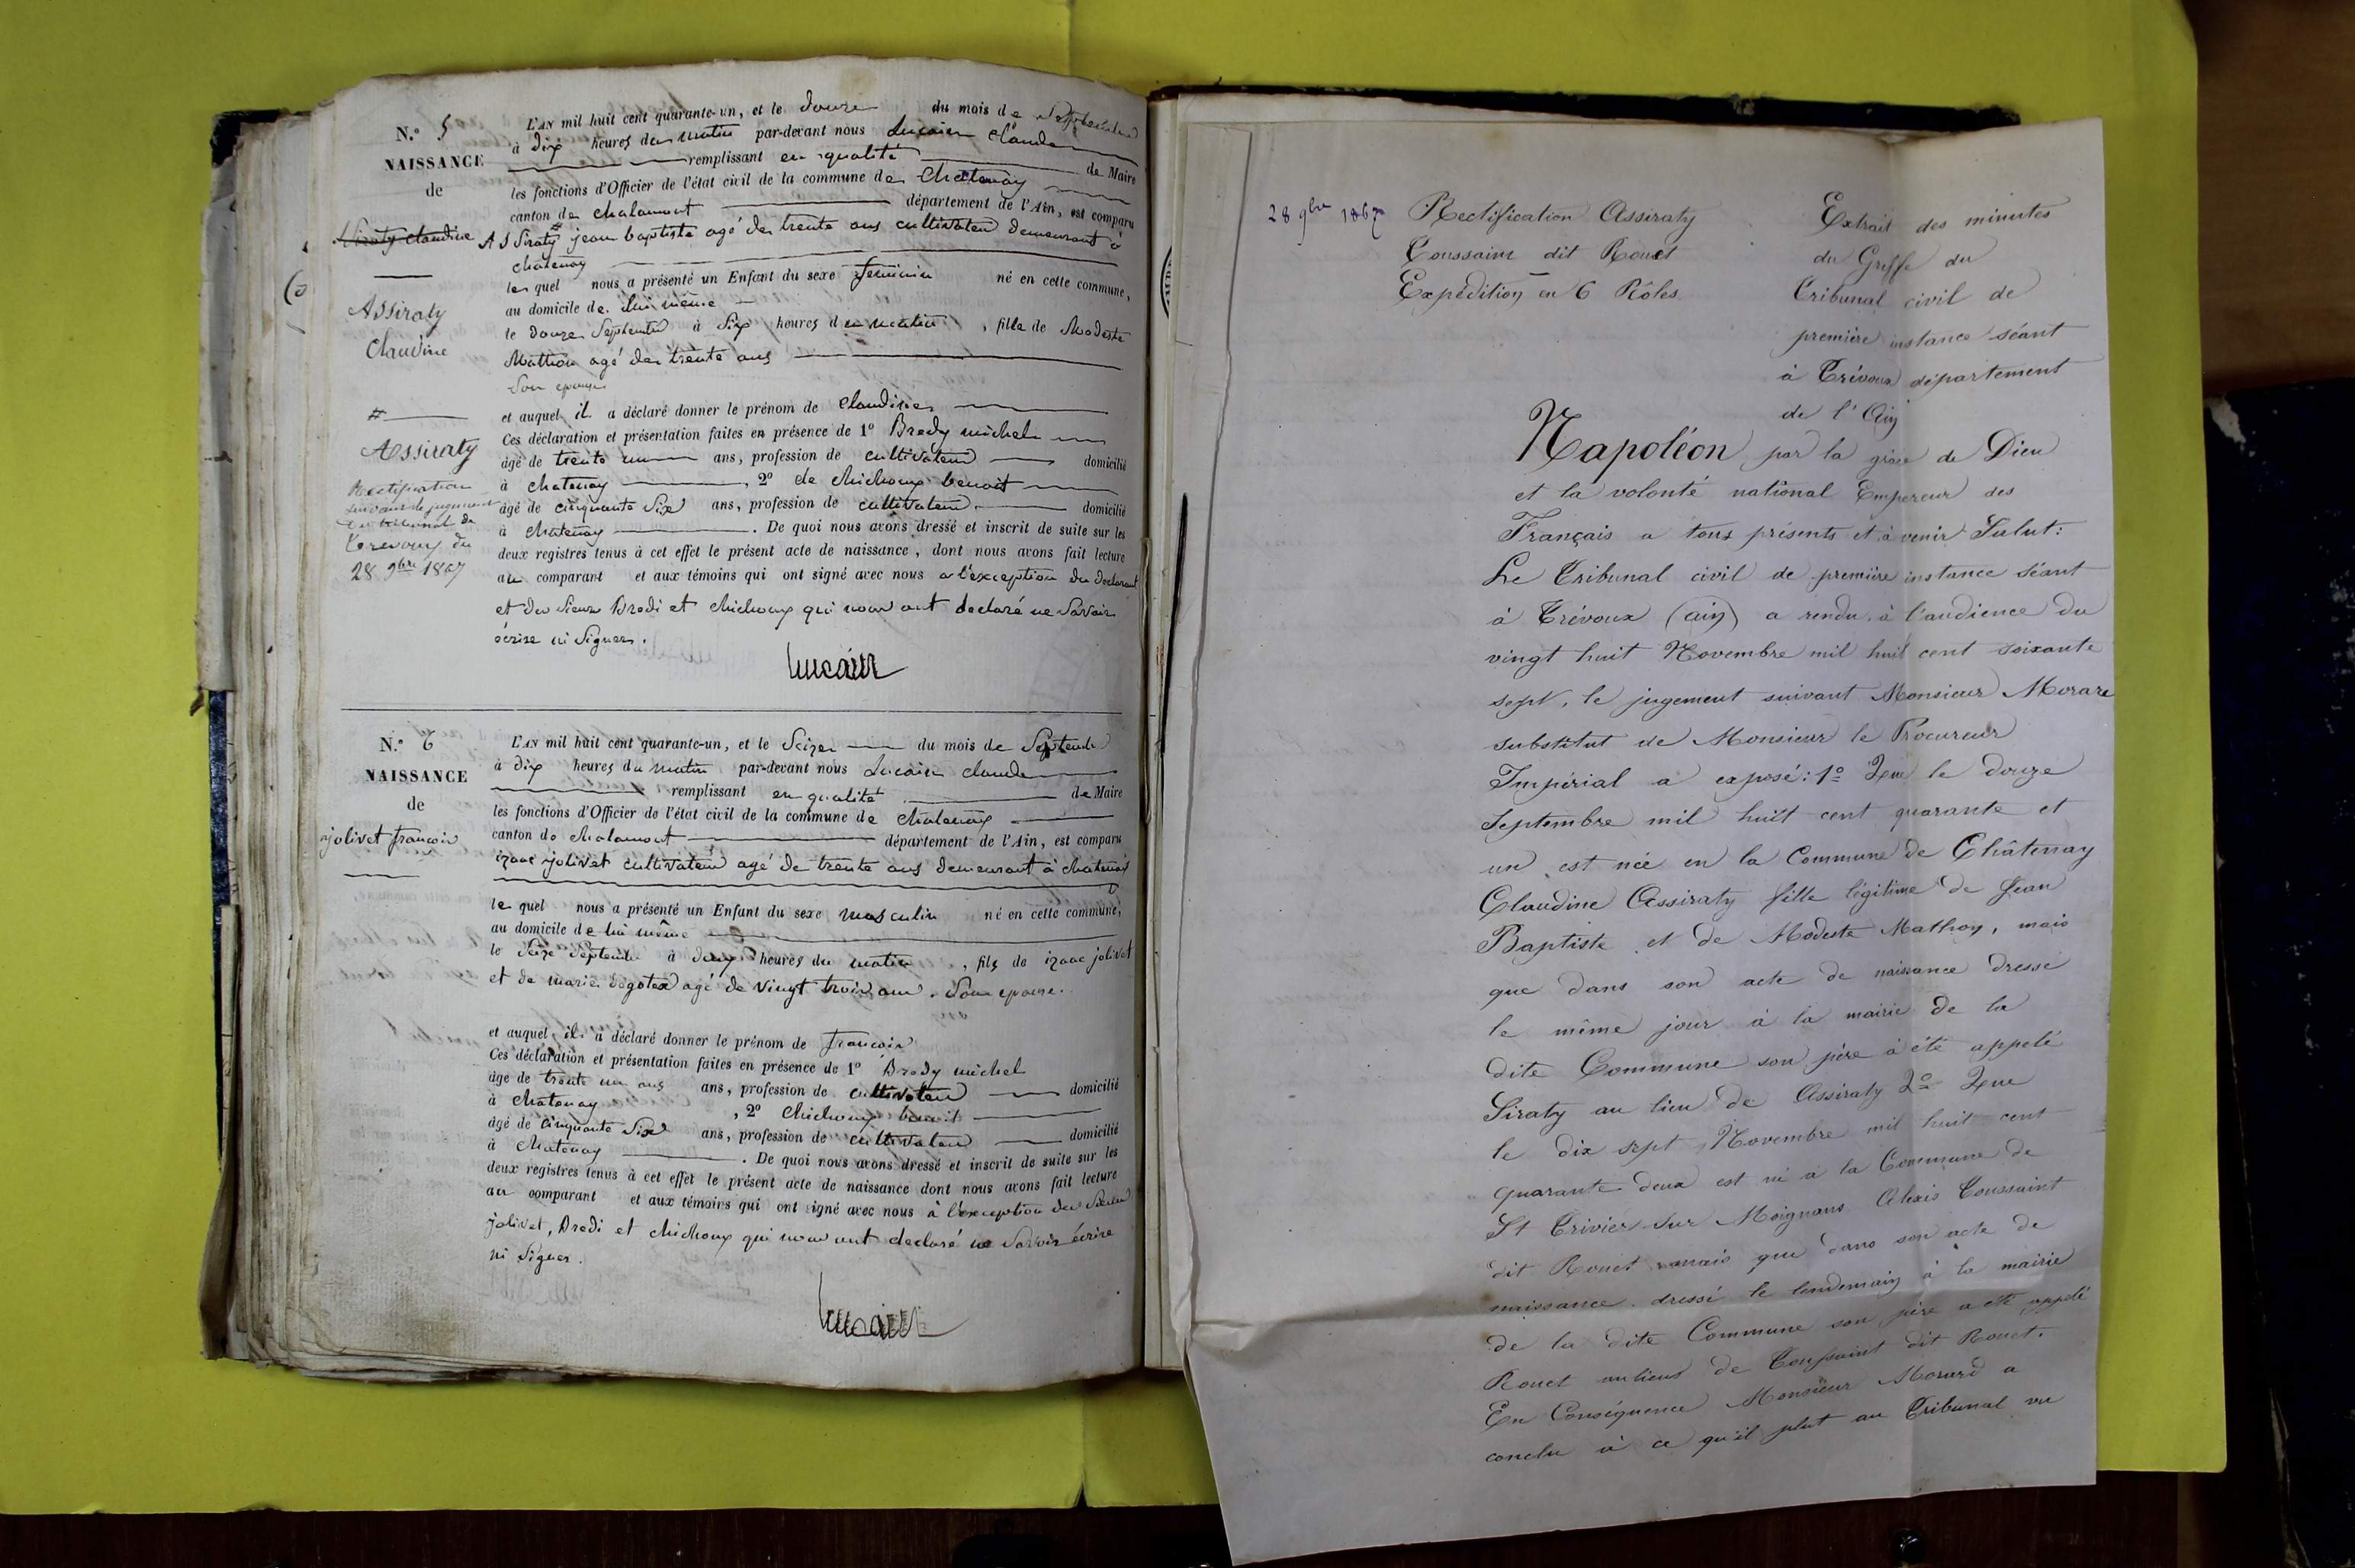 N.º 5
NAISSANCE
de
Siraty claudine
Assiraty
Claudine
#
Assiraty
Rectification
suivant le jugement
du tribunal de
Trevoux du
28 9bre 1867
L'AN mil huit cent quarante-un, et le douze du mois de Septembre
à dix heures du matin par-devant nous Lucain Claude
remplissant en qualité de Maire
les fonctions d'Officier de l'état civil de la commune de Chatenay
canton de chalamont département de l'Ain, est comparu
ASSiraty # jean baptiste agé de trente ans cultivateur demeurant à
chatenay
le quel nous a présenté un Enfant du sexe feminin né en cette commune,
au domicile de lui même
le douze Septembre à Six heures du matin, fille de Modeste
Mathon agé de trente ans
Son epouse
et auquel il a déclaré donner le prénom de Claudine
Ces déclaration et présentation faites en présence de 1º Brody michel
âgé de trente un ans, profession de cultivateur domicilié
à chatenay, 2º de chichoux benoit
âgé de cinquante Six ans, profession de cultivateur domicilié
à chatenay. De quoi nous avons dressé et inscrit de suite sur les
deux registres tenus à cet effet le présent acte de naissance, dont nous avons fait lecture
au comparant et aux témoins qui ont signé avec nous a l'exception du declarant
et des Sieurs Brodi et chichoux qui nous ont declaré ne Savoir
écrire ni Signer.
Lucain
N.º 6
NAISSANCE
de
jolivet francois
L'AN mil huit cent quarante-un, et le Seize du mois de Septembre
à dix heures du matin par-devant nous Lucain claude
remplissant en qualité de Maire
les fonctions d'Officier de l'état civil de la commune de chatenay
canton de chalamont département de l'Ain, est comparu
izaac jolivet cultivateur agé de trente ans demeurant à chatenay
le quel nous a présenté un Enfant du sexe masculin né en cette commune,
au domicile de lui même
le Seize Septembre à deux heures du matin, fils de izaac jolivet
et de marie agé de vingt trois ans. Son epouse.
et auquel il a déclaré donner le prénom de francois
Ces déclaration et présentation faites en présence de 1º Brody michel
âgé de trente un ans ans, profession de cultivateur domicilié
à chatenay, 2º chichoux benoit
âgé de cinquante Six ans, profession de cultivateur domicilié
à chatenay. De quoi nous avons dressé et inscrit de suite sur les
deux registres tenus à cet effet le présent acte de naissance dont nous avons fait lecture
au comparant et aux témoins qui ont signé avec nous à l'exception des Sieurs
jolivet, Brodi et chichoux qui nous ont declaré ne Savoir écrire
ni Signer.
Lucain
28 9bre 1867
Rectification Assiraty
Toussaint dit Rouet
Expédition en 6 Rôles
Extrait des minutes
du Greffe du
Tribunal civil de
première instance séant
à Trévoux département
de l'Ain
Napoléon par la grâce de Dieu
et la volonté national Empereur des
Français a tous présents et à venir Salut:
Le Tribunal civil de première instance séant
à Trévoux (ain) a rendu à l'audience du
vingt huit Novembre mil huit cent soixante
sept, le jugement suivant Monsieur Morard
substitut de Monsieur le Procureur
Impérial a exposé: 1º Que le douze
Septembre mil huit cent quarante et
un est née en la Commune de Châtenay
Claudine Assiraty fille légitime de Jean
Baptiste et de Modeste Mathon, mais
que dans son acte de naissance dressé
le même jour à la mairie de la
dite Commune son père à été appelé
Siraty au lieu de Assiraty 2º Que
le dix sept Novembre mil huit cent
quarante deux est né à la Commune de
St Trivier sur Moignans Alexis Toussaint
dit Rouet mais que dans son acte de
naissance dressé le lendemain à la mairie
de la dite Commune son père a été appelé
Rouet au lieu de Toussaint dit Rouet.
En Conséquence Monsieur Morard a
conclu à ce qu'il plut au Tribunal vu